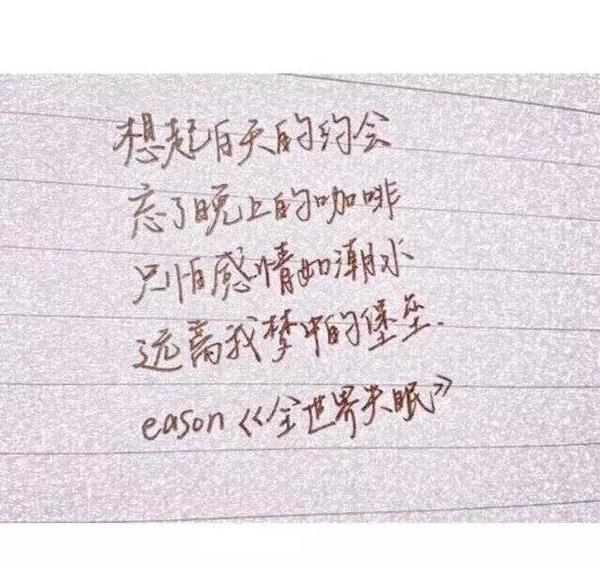 想起白天的约会
忘了晚上的咖啡
只怕感情如潮水
远离我梦中的堡垒.
eason《全世界失眠》